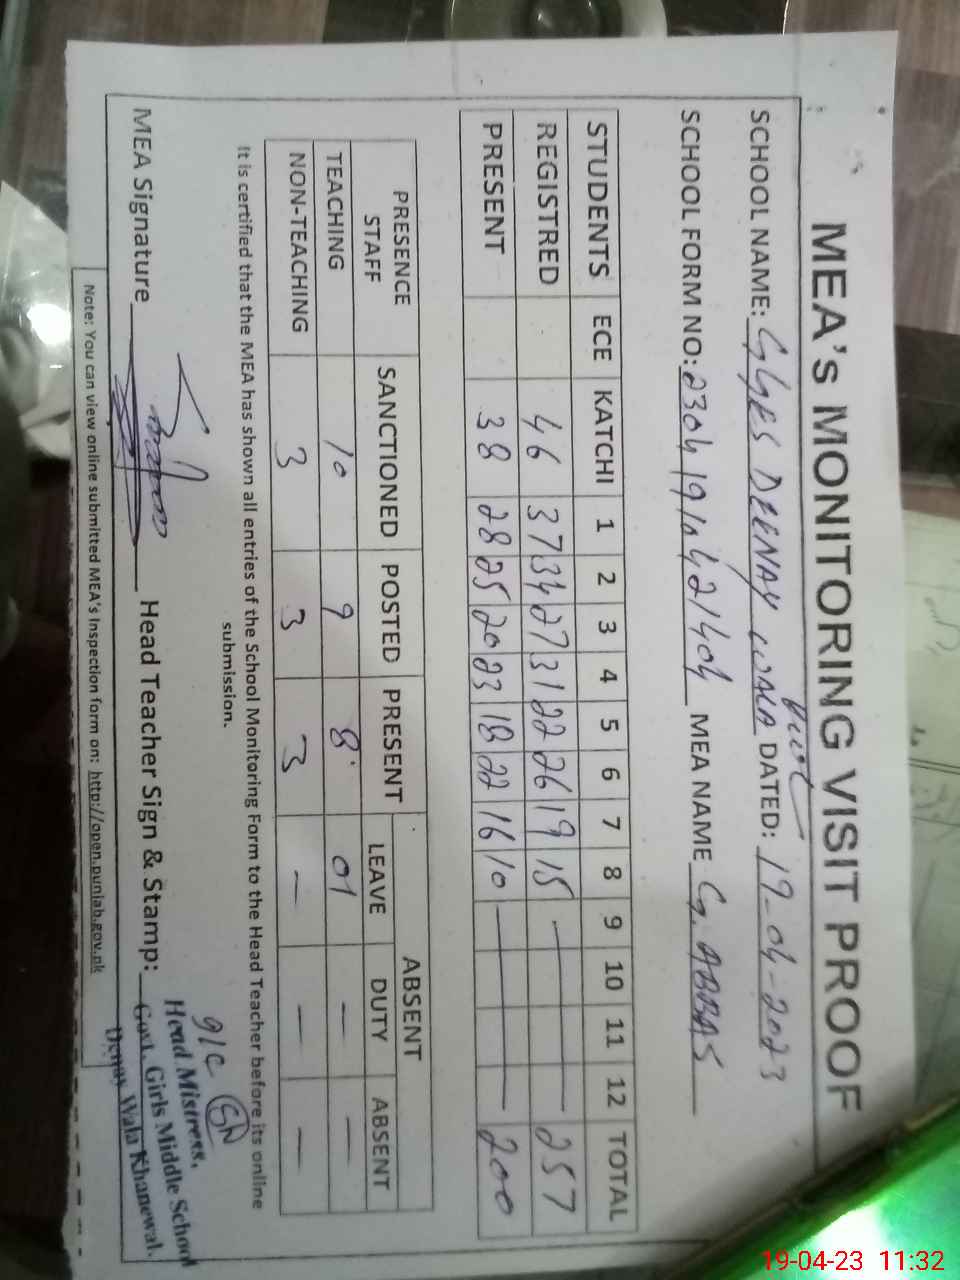 MEA's MONITORING VISIT PROOF
SCHOOL NAME: GGES DEENAY WALA DATED: 19-04-2023
SCHOOL FORM NO: MEA NAME G. ABBAS
STUDENTS ECE KATCHI 1 2 3 4 5 6 7 8 9 10 11 12 TOTAL
REGISTRED 46 37 34 27 31 22 26 19 15 — 257
PRESENT 38 28 25 20 23 18 22 16 10 — 200
PRESENCE STAFF SANCTIONED POSTED PRESENT ABSENT
LEAVE DUTY ABSENT
TEACHING 10 9 8 01 — —
NON-TEACHING 3 3 3 — — —
It is certified that the MEA has shown all entries of the School Monitoring Form to the Head Teacher before its online
submission.
MEA Signature Head Teacher Sign & Stamp:
Head Mistress,
Govt. Girls Middle School
Denay Wala Khanewal.
Note: You can view online submitted MEA's Inspection form on: http://open.punjab.gov.pk
19-04-23 11:32